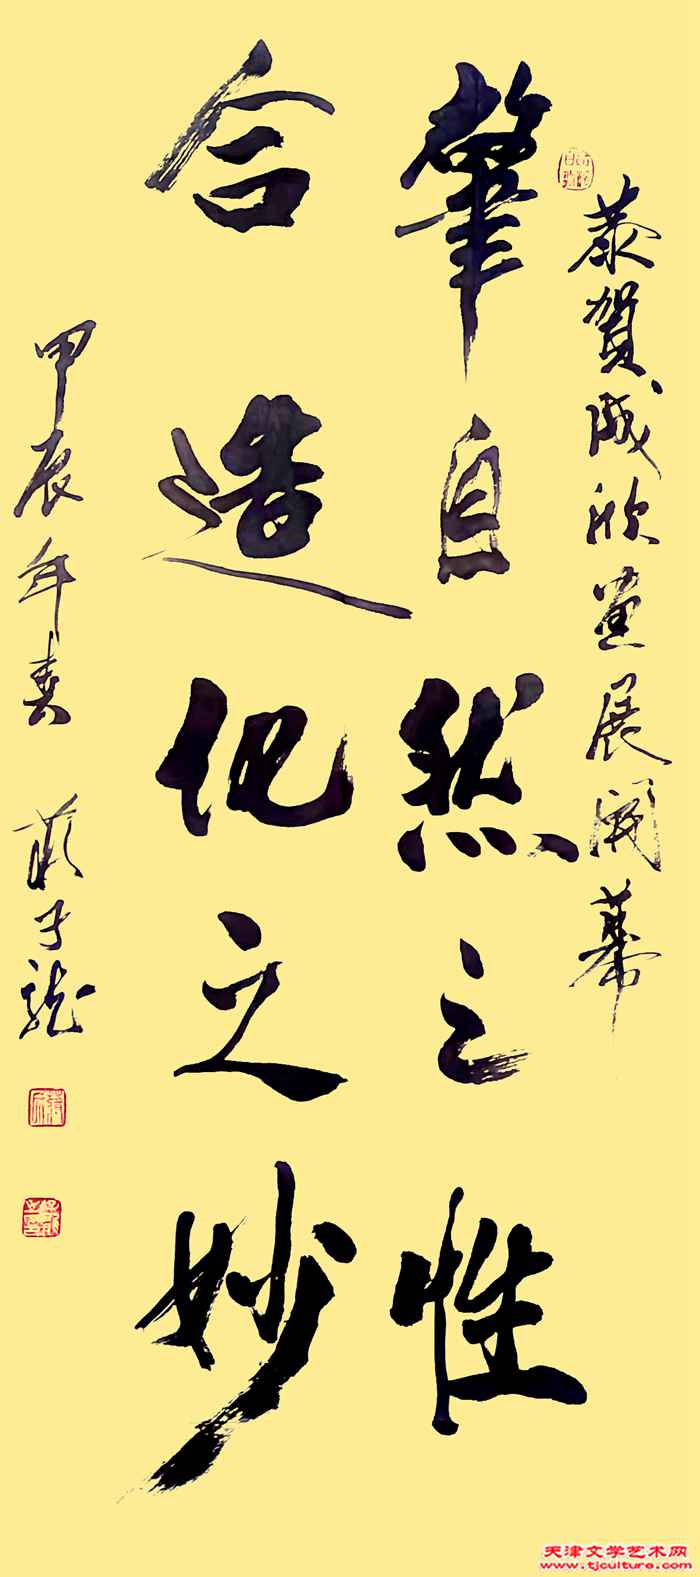 恭贺成欣画展开幕
肇自然之性
合造化之妙
甲辰年春 蒋子龙
天津文学艺术网
www.tjculture.com